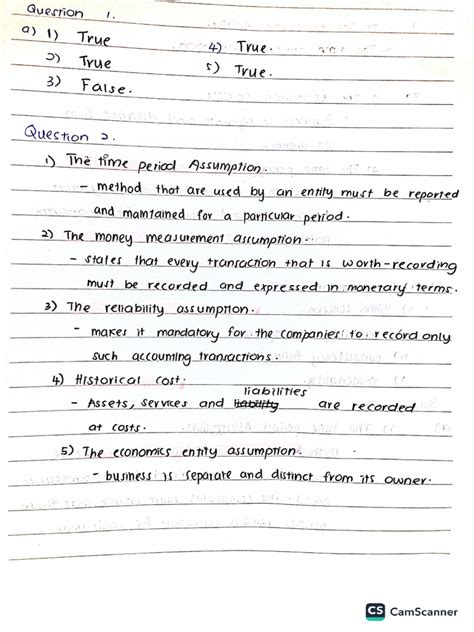 Question 1.
a) 1) True
2) True
3) False.
4) True.
5) True.
Question 2.
1) The time period Assumption.
- method that are used by an entity must be reported
and maintained for a particular period.
2) The money measurement assumption.
- states that every transaction that is worth-recording
must be recorded and expressed in monetary terms.
3) The reliability assumption.
- makes it mandatory for the companies to record only
such accounting transactions.
4) Historical cost.
liabilities
- Assets, services and liability are recorded
at costs.
5) The economics entity assumption.
- business is separate and distinct from its owner.
CS CamScanner